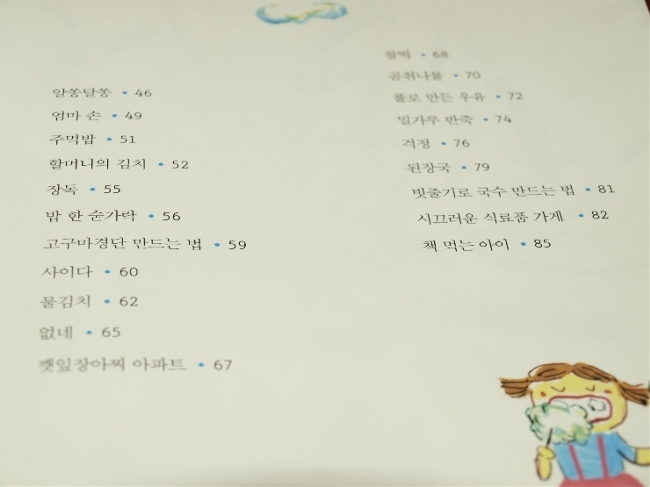 알쏭달쏭 • 46
엄마 손 • 49
주먹밥 • 51
할머니의 김치 • 52
장독 • 55
밥 한 숟가락 • 56
고구마경단 만드는 법 • 59
사이다 • 60
물김치 • 62
없네 • 65
깻잎장아찌 아파트 • 67
찰떡 • 68
곰취나물 • 70
풀로 만든 우유 • 72
밀가루 반죽 • 74
걱정 • 76
된장국 • 79
빗줄기로 국수 만드는 법 • 81
시끄러운 식료품 가게 • 82
책 먹는 아이 • 85